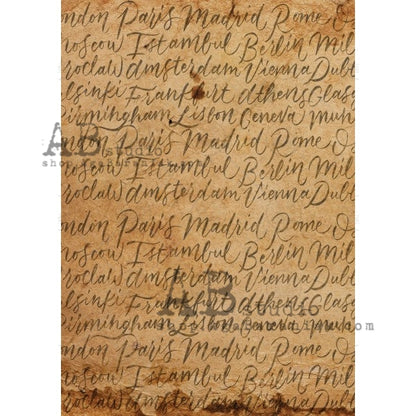 ondon Paris Madrid Rome
oscow Istambul Berlin Mil
roclaw Amsterdam Vienna Dubl
elsinki Frankfurt Athens Glasg
Birmingham Lisbon Geneva Mun
AB studio
ondon Paris Madrid Rome
oscow Istambul Berlin Mil
roclaw Amsterdam Vienna Dubl
elsinki Frankfurt Athens Glasg
AB studio
Birmingham Lisbon Geneva
ondon Paris Madrid Rome
oscow Istambul Berlin Mil
roclaw Amsterdam Vienna Dubl